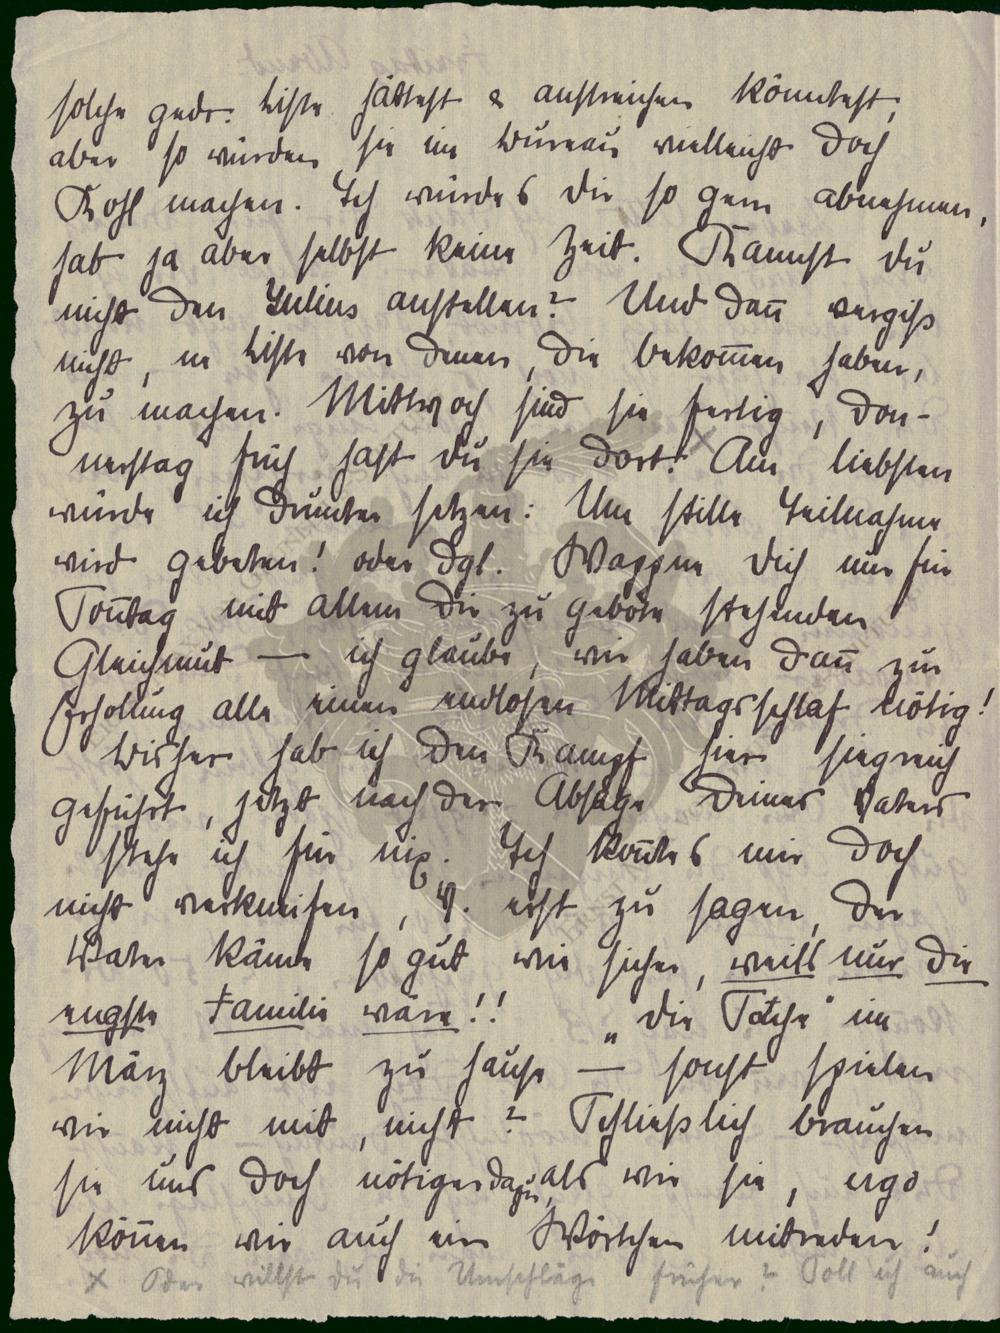 solche gedr. Liste hättest & anstreichen könntest,
aber so würden sie im Bureau vielleicht doch
Kohl machen. Ich würde s dir so gern abnehmen,
hab ja aber selbst keine Zeit. Kannst du
nicht den Julius anstellen? Und dan̄ vergiß
nicht, ne Liste von denen, die bekom̄en haben,
zu machen. Mittwoch sind sie fertig, Don-
nerstag früh hast du sie dort. x Am liebsten
würde ich drunter setzen: Um stille Teilnahme
wird gebeten! oder dgl. Wappne dich nur für
Son̄tag mit allem dir zu gebote stehenden
Gleichmut — ich glaube, wir haben dan̄ zur
Erholung alle einen endlosen Mittagsschlaf nötig!
Bisher hab ich den Kampf hier siegreich
geführt, jetzt nach der Absage deines Vaters
stehe ich für nix. Ich kon̄te s mir doch
nicht verkneifen, V. erst zu sagen, der
Vater käme so gut wie sicher, weils nur die
engste Familie wäre!! „die Sache" im
März bleibt zu hause — sonst spielen
wir nicht mit, nicht? Schließlich brauchen
sie uns doch nötiger dazu, als wir sie, ergo
kön̄en wir auch ein Wörtchen mitreden!
x Oder willst du die Umschläge früher? Soll ich auch